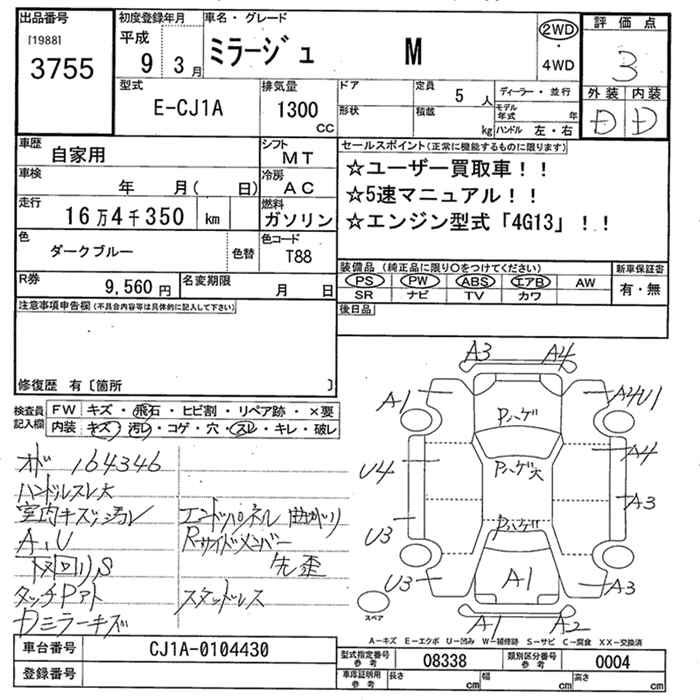 出品番号
[1988]
3755
初度登録年月
平成
9 3月
車名・グレード
ミラージュ M
2WD
・
4WD
評価点
3
型式
E-CJ1A
排気量
1300
cc
ドア
形状
定員
5 人
積載
kg
ディーラー・並行
モデル年式 年
ハンドル 左・右
外装 内装
D D
車歴
自家用
シフト
MT
セールスポイント(正常に機能するものに限ります)
☆ユーザー買取車!!
☆5速マニュアル!!
☆エンジン型式「4G13」!!
車検
年 月( 日)
冷房
AC
走行
16万4千350 km
燃料
ガソリン
色
ダークブルー
色替
色コード
T88
R券
9,560円
名変期限
月 日
装備品(純正品に限り○をつけてください)
PS PW ABS エアB AW
SR ナビ TV カワ
新車保証書
有・無
注意事項申告欄(不具合内容等は具体的に記入して下さい)
後日品
修復歴 有〔箇所 〕
検査員記入欄
FW キズ・飛石・ヒビ割・リペア跡・×要
内装 キズ・汚レ・コゲ・穴・スレ・キレ・破レ
オド 164346
ハンドルスレ大
室内キズ、汚レ
A,U
下回リS
タッチPアト
Dミラーキズ
エンドパネル曲がり
Rサイドメンバー
先歪
スタッドレス
A3 A4
A1
Pハゲ
A4U1
U4
Pハゲ大
A4
A3
U3
Pハゲ
U3
A1
A3
スペア
A1 A2
A-キズ E-エクボ U-凹み W-補修跡 S-サビ C-腐食 XX-交換済
車台番号
CJ1A-0104430
登録番号
型式指定番号
参考
08338
類別区分番号
参考
0004
車庫証明用
参考
長さ cm
幅 cm
高さ cm